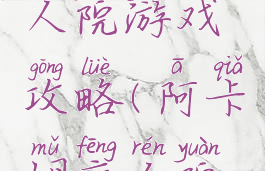 人院游戏
gōng lüè ā qiǎ
攻略(阿卡
mǔ fēng rén yuàn